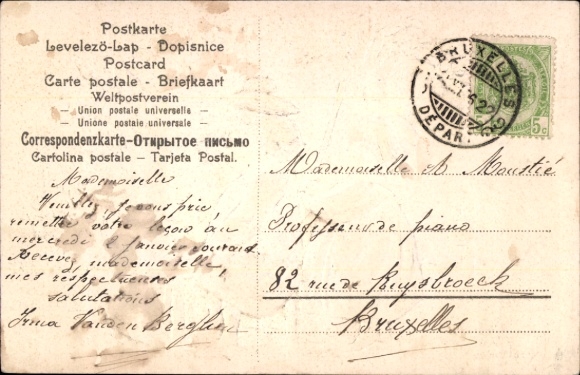 Postkarte
Levelező-Lap - Dopisnice
Postcard
Carte postale - Briefkaart
Weltpostverein
Union postale universelle
Unione postale universale
Correspondenzkarte-Открытое письмо
Cartolina postale - Tarjeta Postal.
Mademoiselle
Veuillez je vous prie
remettre votre leçon au
mercredi 2 Janvier courant.
Recevez mademoiselle,
mes respectueuses
salutations
Irma Vanden Berghe
BRUXELLES
DEPART
5c
Mademoiselle A Moustié
Professeur de piano
82 rue de Ruysbroeck
Bruxelles